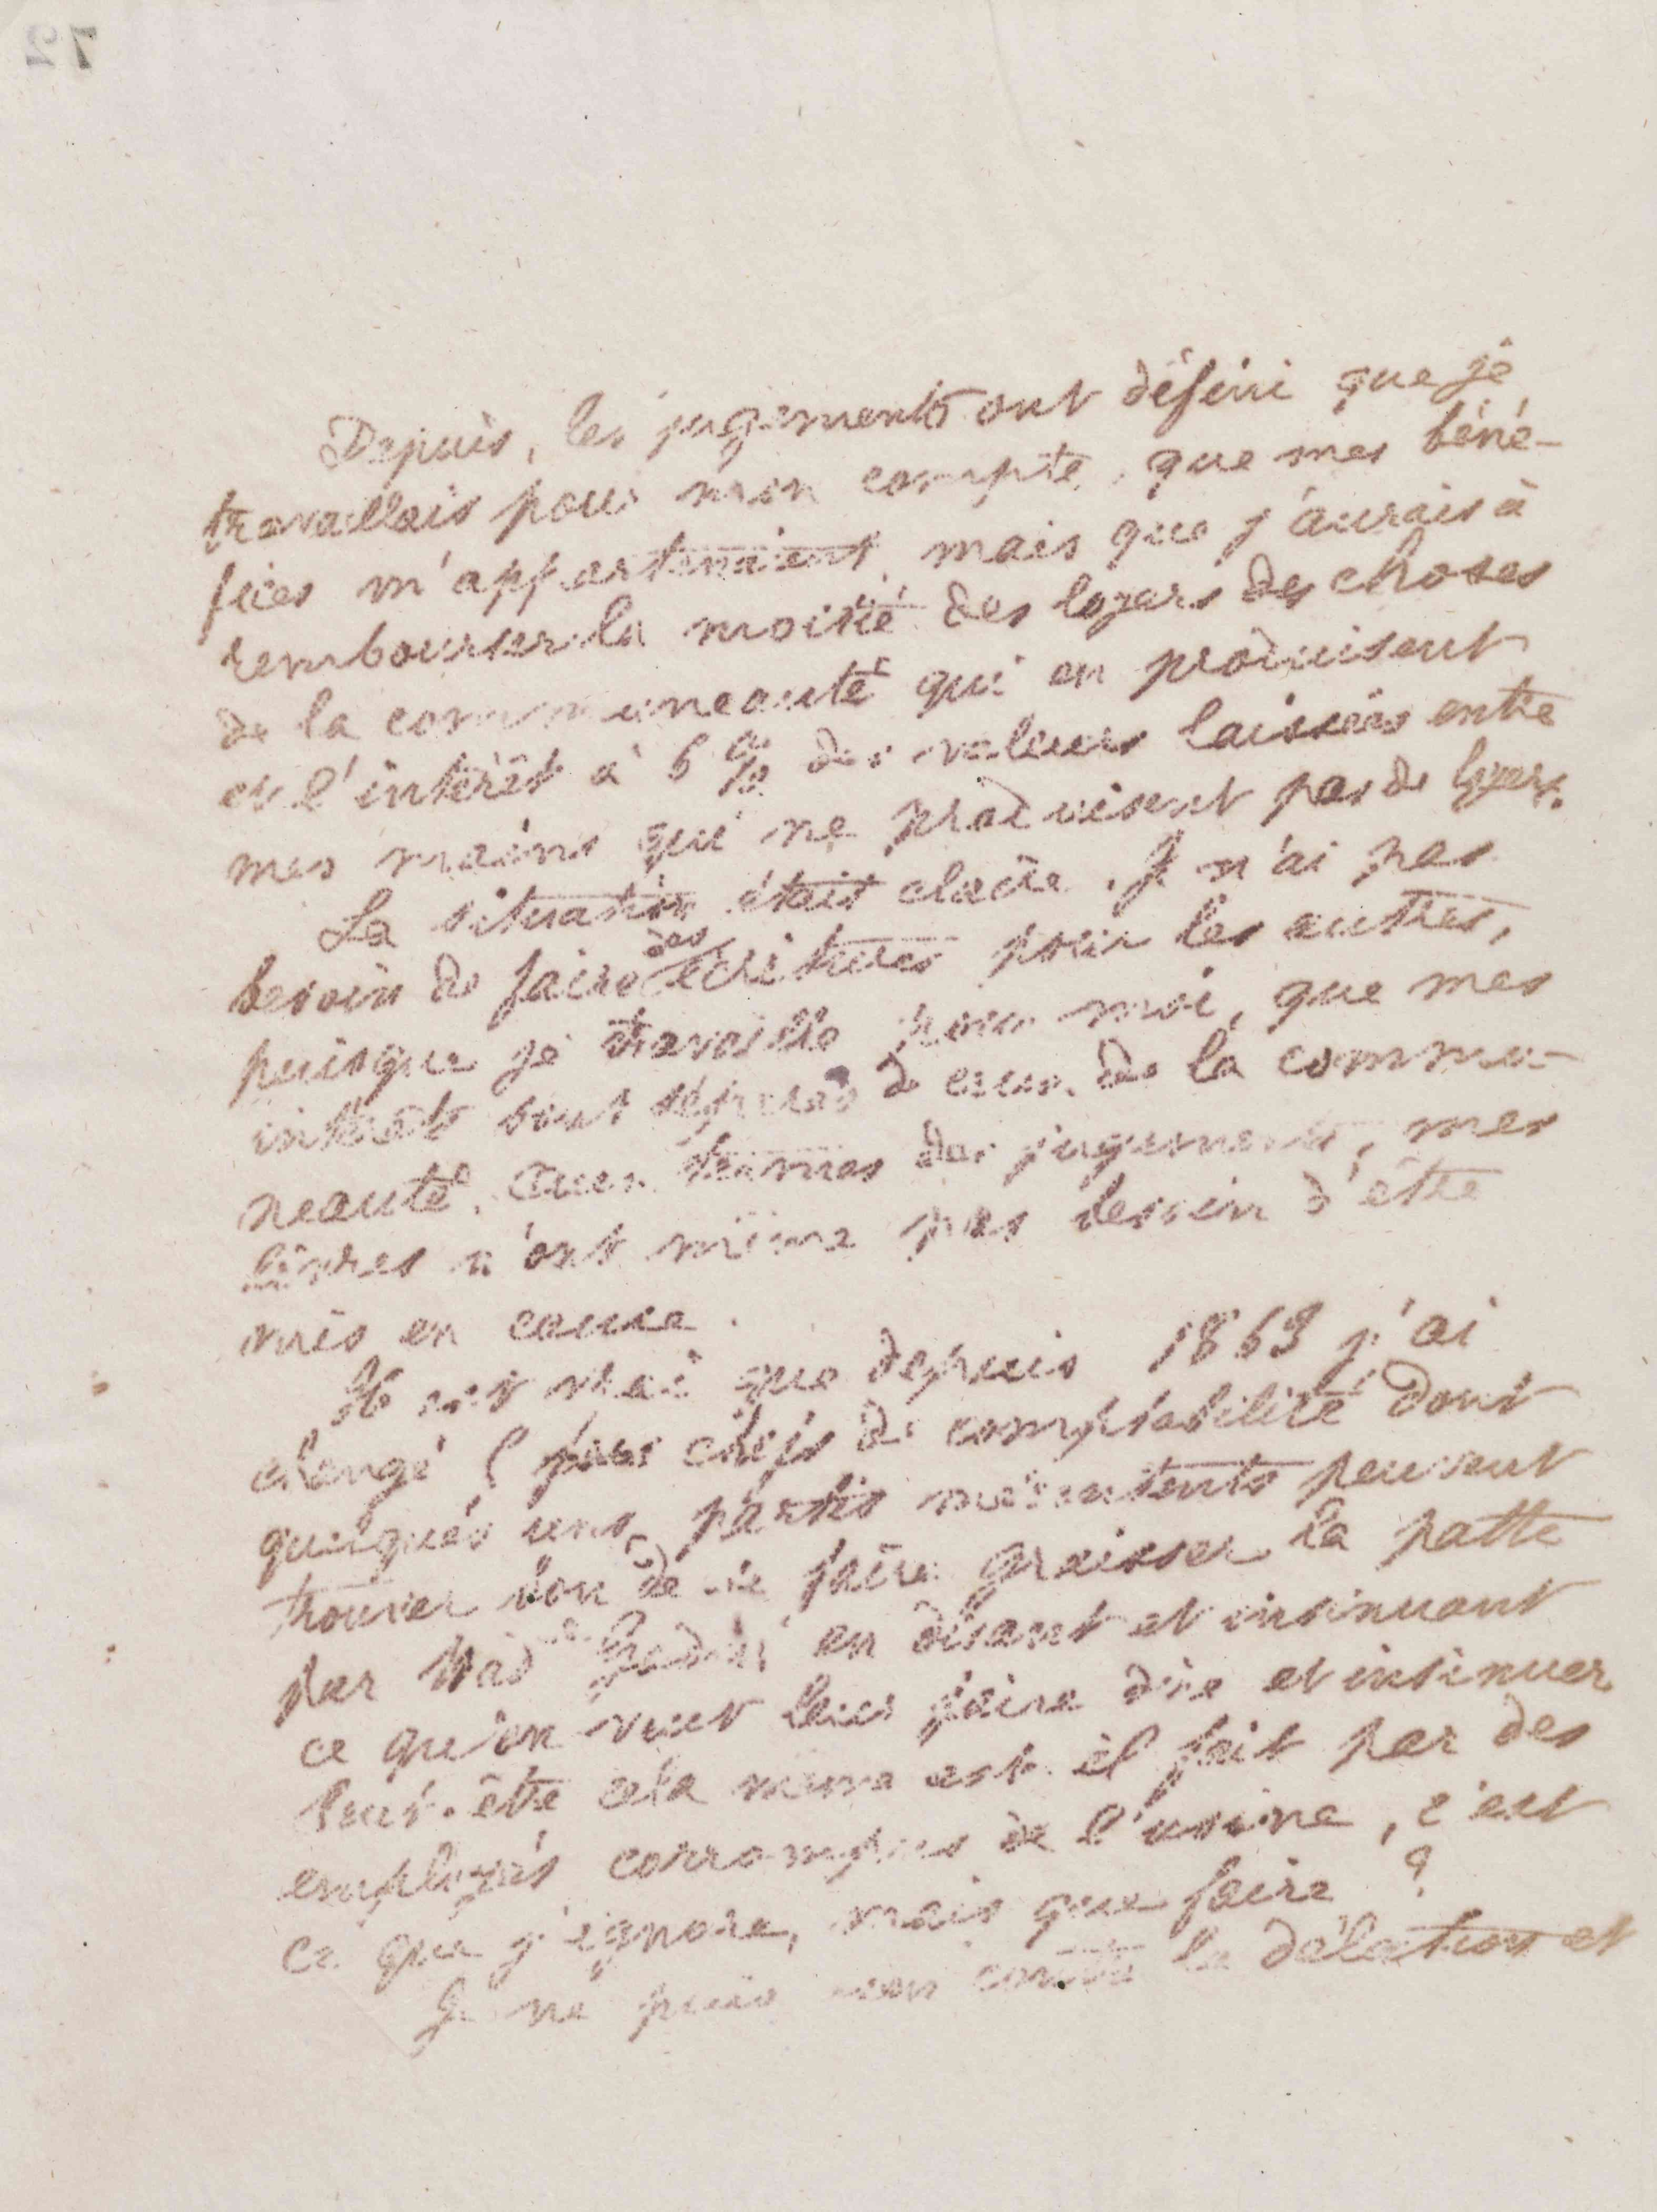 72
Depuis, les jugements ont défini que je
travaillais pour mon compte, que mes béné-
fices m'appartenaient mais que j'aurais à
rembourser la moitié des loyers des choses
de la communeauté qui en produisent
et l'intérêt à 5 % des valeurs laissées entre
mes mains qui ne produisent pas de loyers.
La situation était claire. Je n'ai pas
besoin de faire des écritures pour les autres,
puisque je travaille pour moi, que mes
intérêts sont séparés de ceux de la commu-
neauté. Aux termes des jugements, mes
livres n'ont même pas besoin d'être
mis en cause.
Il est vrai que depuis 1863 j'ai
changé chefs de comptabilité dont
quelques uns partis mécontents peuvent
trouver bon de se faire graisser la patte
par Mad Godin en disant et insinuant
ce qu'on veut leur faire dire et insinuer.
Peut-être cela même est il fait par des
employés corrompus de l'usine, c'est
ce que j'ignore, mais que faire ?
Je ne puis rien contre la délation et